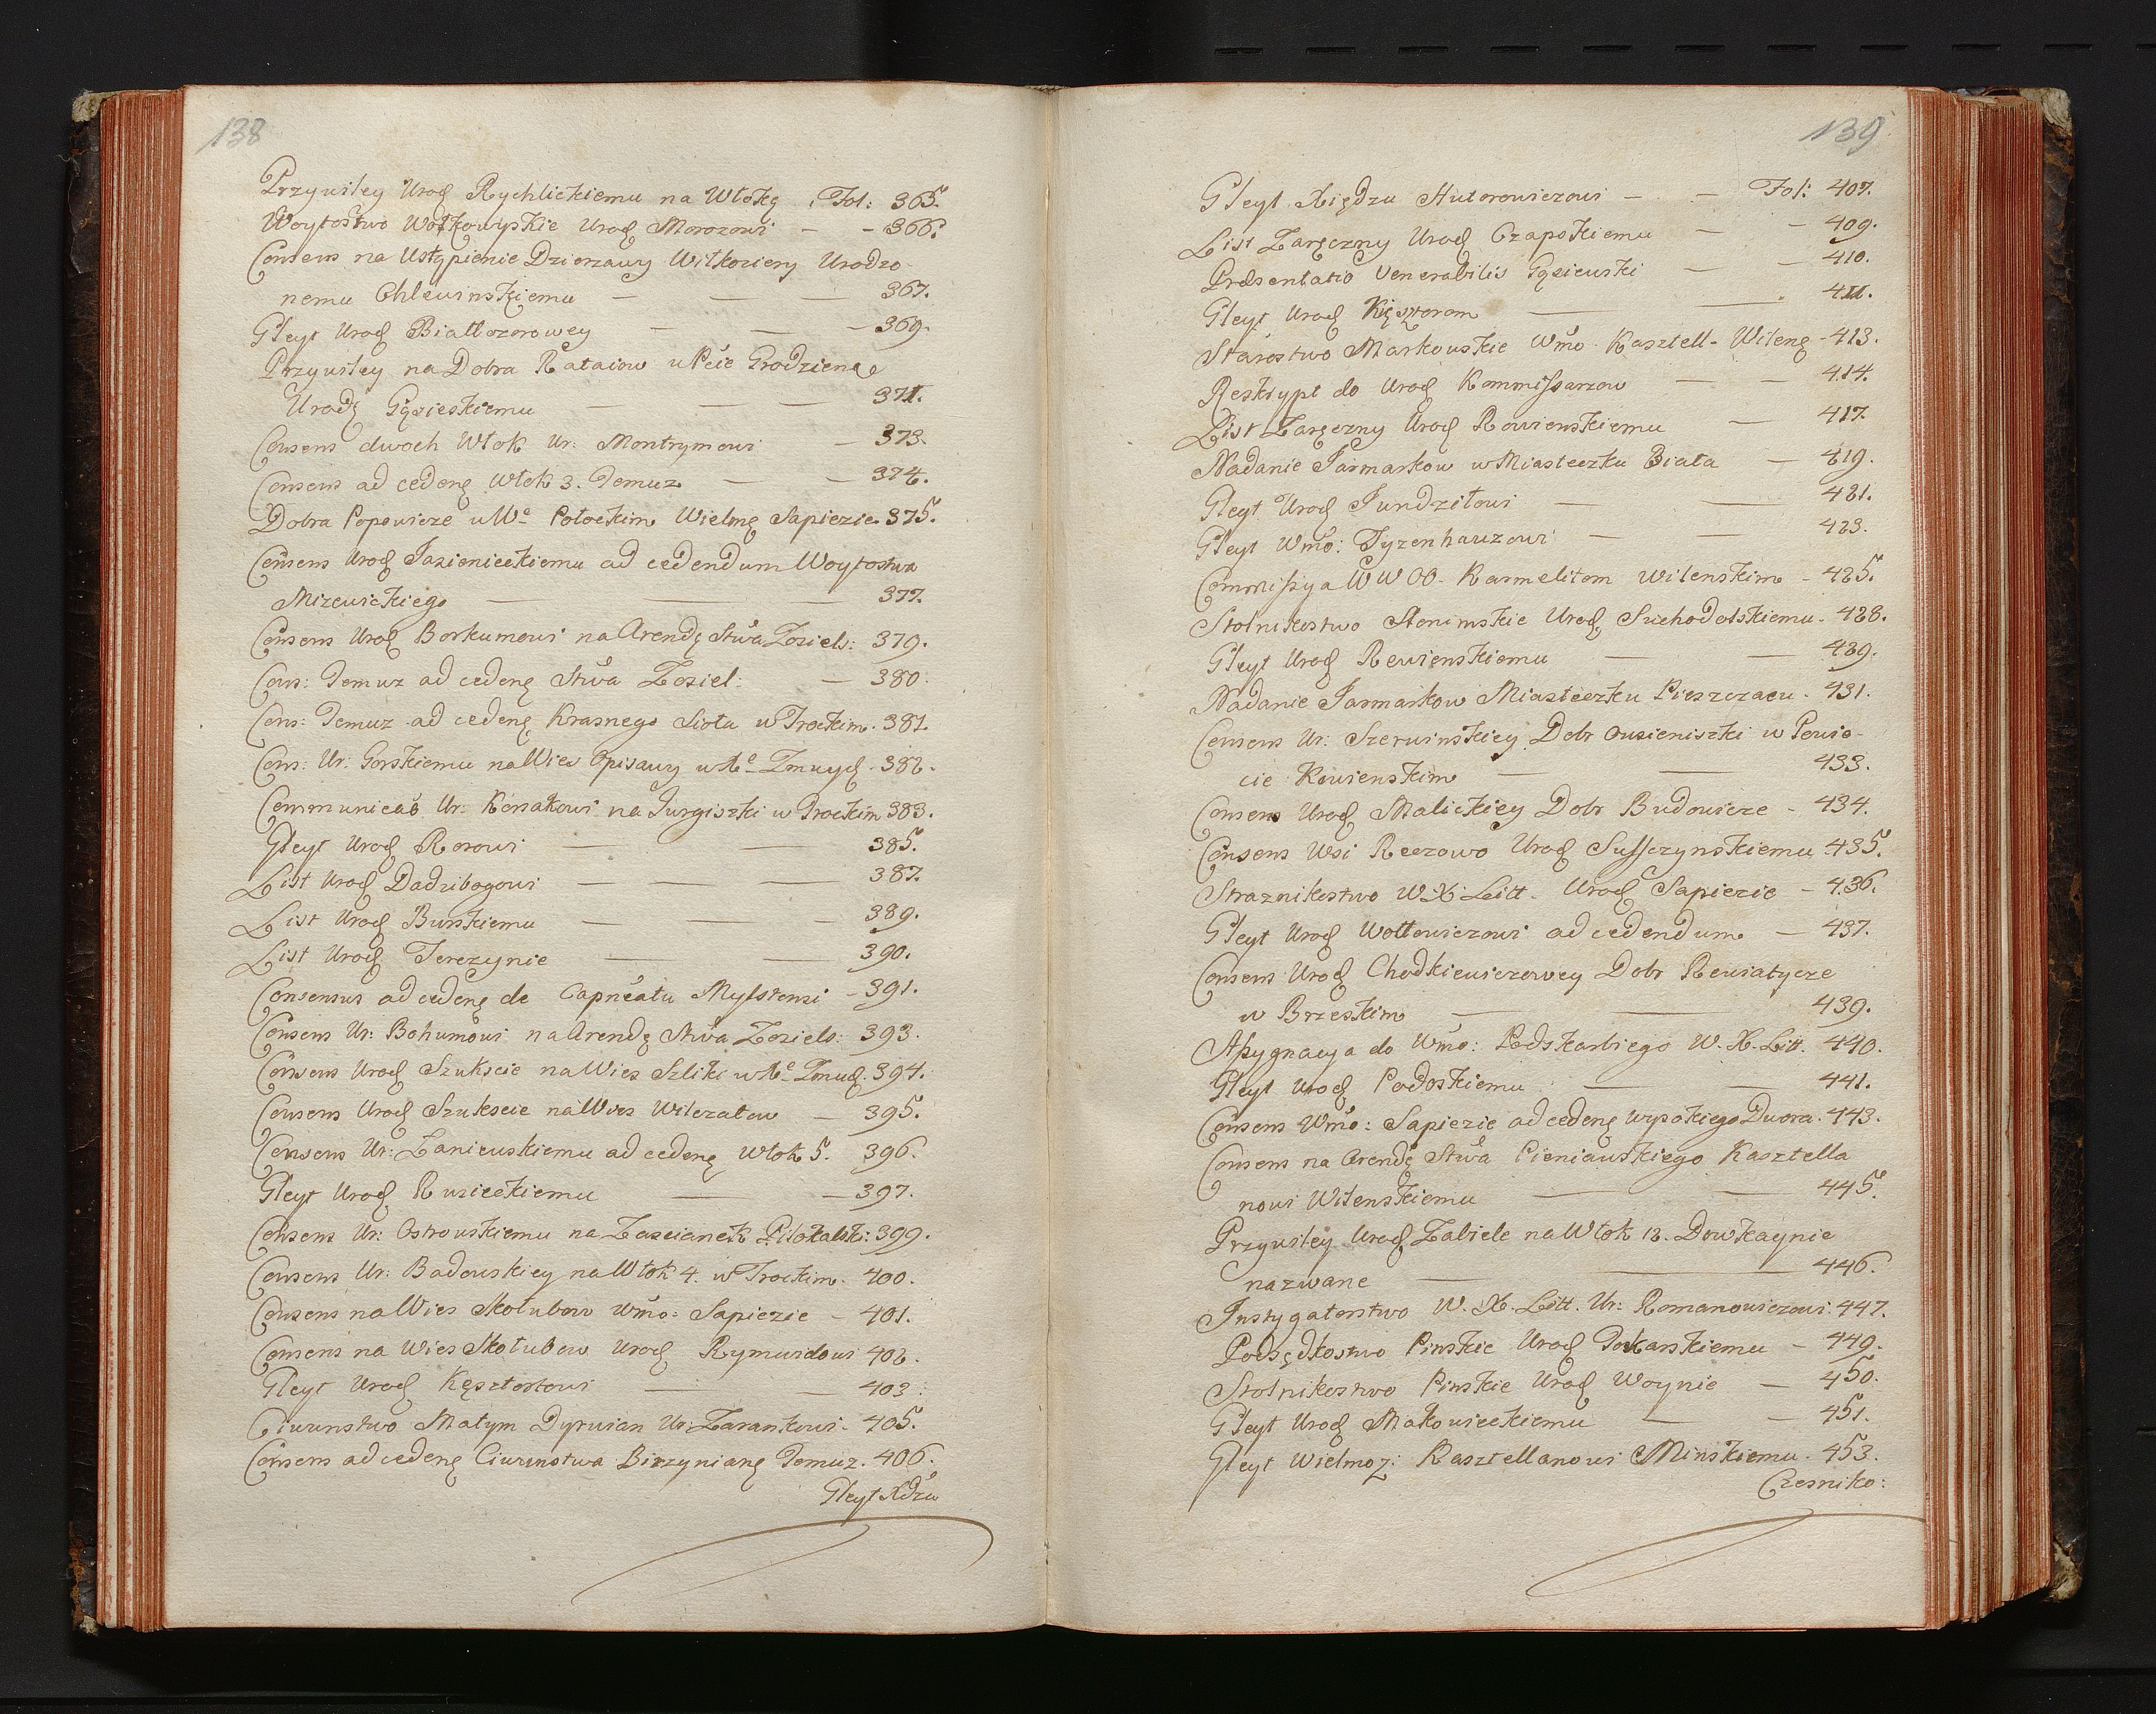 138
Przywiley Urodz Rychlickiemu na Włokę . Fol: 365.
Woytostwo Wołkowyskie Urodz Morozowi — - 366.
Consens na Ustąpienie Dzierzawy Wilkoziery Urodzo-
nemu Chlewinskiemu — — — 367.
Gleyt Urodz Białłozorowey — — — 369.
Przywiley na Dobra Rataiow w Pcie Grodziene
Urodz Gąsieskiemu — — — 371.
Consens dwoch Włok Ur: Montrymowi — 373.
Consens ad cedenę Włok 3. Temuz — — 374.
Dobra Popowicze w We Połockim Wielmę Sapiezie. 375.
Consens Urodz Jasienieckiemu ad cedendum Woytostwa
Mizewickiego — — — 377.
Consens Urodz Borkumowi na Arendę Stwa Zosiels: 379.
Cons: Temuz ad cedenę Stwa Zosiel: — 380.
Cons: Temuz ad cedenę Krasnego Sioła w Trockim. 381.
Cons: Ur: Gorskiemu na Wies Opisawy w Xe Zmuydz. 382.
Communicaō Ur: Kossakowi na Jurgiszki w Trockim 383.
Gleyt Urodz Rorowi — — 385.
List Urodz Dadzibogowi — — — 387.
List Urodz Burskiemu — — — 389.
List Urodz Terezynie — — 390.
Consensus ad cedenę de Capnēatu Mylstensi - 391.
Consens Ur: Bohumowi na Arendę Stwa Zosiels: 393.
Consens Urodz Szukscie na Wies Szliki w Xe Zmudz. 394.
Consens Urodz Szukscie na Wies Wilczatow — 395.
Consens Ur: Zaniewskiemu ad cedenę Włok 5. 396.
Gleyt Urodz Rusieckiemu — — 397.
Consens Ur: Ostrowskiemu na Zascianek Piłokalsk: 399.
Consens Ur: Badowskiey na Włok 4. w Trockim. 400.
Consens na Wies Skołubow Wmo: Sapiezie — 401.
Consens na Wies Skołubow Urodz Rymwidowi 402.
Gleyt Urodz Kęsztortowi — — 403.
Ciwunstwo Małym Dyrwian Ur: Zarankowi. 405.
Consens ad cedenę Ciwunstwa Birzynianę Temuz. 406.
Gleyt Xdzu
139
Gleyt Xiędzu Hutorowiczowi — — Fol: 407.
List Zaręczny Urodz Czapskiemu — — 409.
Præsentatio Venerabilis Gąsiewski — — 410.
Gleyt Urodz Kięsztorom — — 411.
Starostwo Markowskie Wmo Kasztell- Wilenę - 413.
Reskrypt do Urodz Kommissarzow — — 414.
List Zaręczny Urodz Rowienskiemu — 417.
Nadanie Jarmarkow w Miasteczku Biała — 419.
Gleyt Urodz Jundziłowi — — 421.
Gleyt Wmo: Tyzenhauzowi — — 423.
Commissya WW OO. Karmelitom Wilenskim - 425.
Stolnikostwo Słonimskie Urodz Suchodolskiemu. 428.
Gleyt Urodz Rewienskiemu — — 429.
Nadanie Jarmarkow Miasteczku Pieszczacu. 431.
Consens Ur: Szerwinskiey Dobr Owsieniszki w Powie-
cie Kowienskim — — 433.
Consens Urodz Malickiey Dobr Budowicze - 434.
Consens Wsi Reczowo Urodz Suffczynskiemu. 435.
Straznikostwo W. X: Litt. Urodz Sapiezie - 436.
Gleyt Urodz Wołłowiczowi ad cedendum — 437.
Consens Urodz Chodkiewiczowey Dobr Rewiatycze
w Brzeskim — — 439.
Assygnacya do Wmo: Podskarbiego W. X. Litt. 440.
Gleyt Urodz Podoskiemu — — 441.
Consens Wmo: Sapiezie ad cedenę Wysokiego Dwora. 443.
Consens na Arendę Stwa Pieniawskiego Kasztella
nowi Wilenskiemu — — 445.
Przywiley Urodz Zabiele na Włok 12. Dowkaynie
nazwane — — 446.
Instygatorstwo W. X. Litt. Ur: Romanowiczowi. 447.
Podsędkostwo Pinskie Urodz Tokarskiemu — 449.
Stolnikostwo Pinskie Urodz Woynie — 450.
Gleyt Urodz Makowieckiemu — — 451.
Gleyt Wielmoz: Kasztellanowi Minskiemu. 453.
Czesniko: